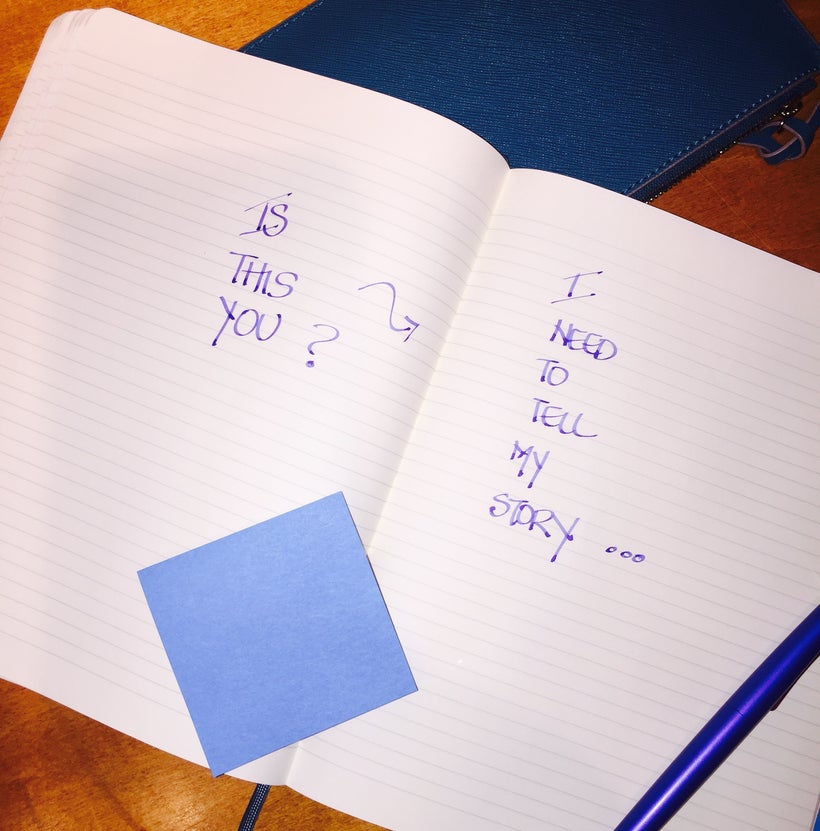 IS
THIS
YOU ?
I
NEED
TO
TELL
MY
STORY ...